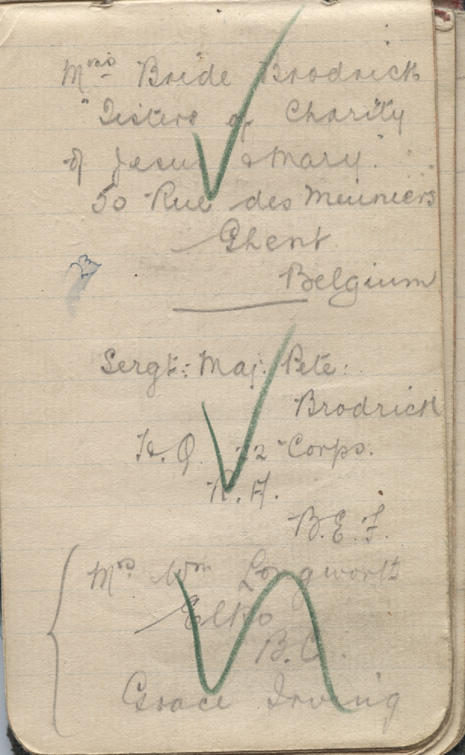 Mrs Bride Brodrick
"Sisters of Charity
of Jesus & Mary."
50 Rue des Meuniers
Ghent
Belgium
Sergt: Maj. Pete:
Brodrick
H.Q. 22 Corps.
R.A.
B.E.F.
Mrs Wm Longworth
Elko
B.C.
Grace Irving